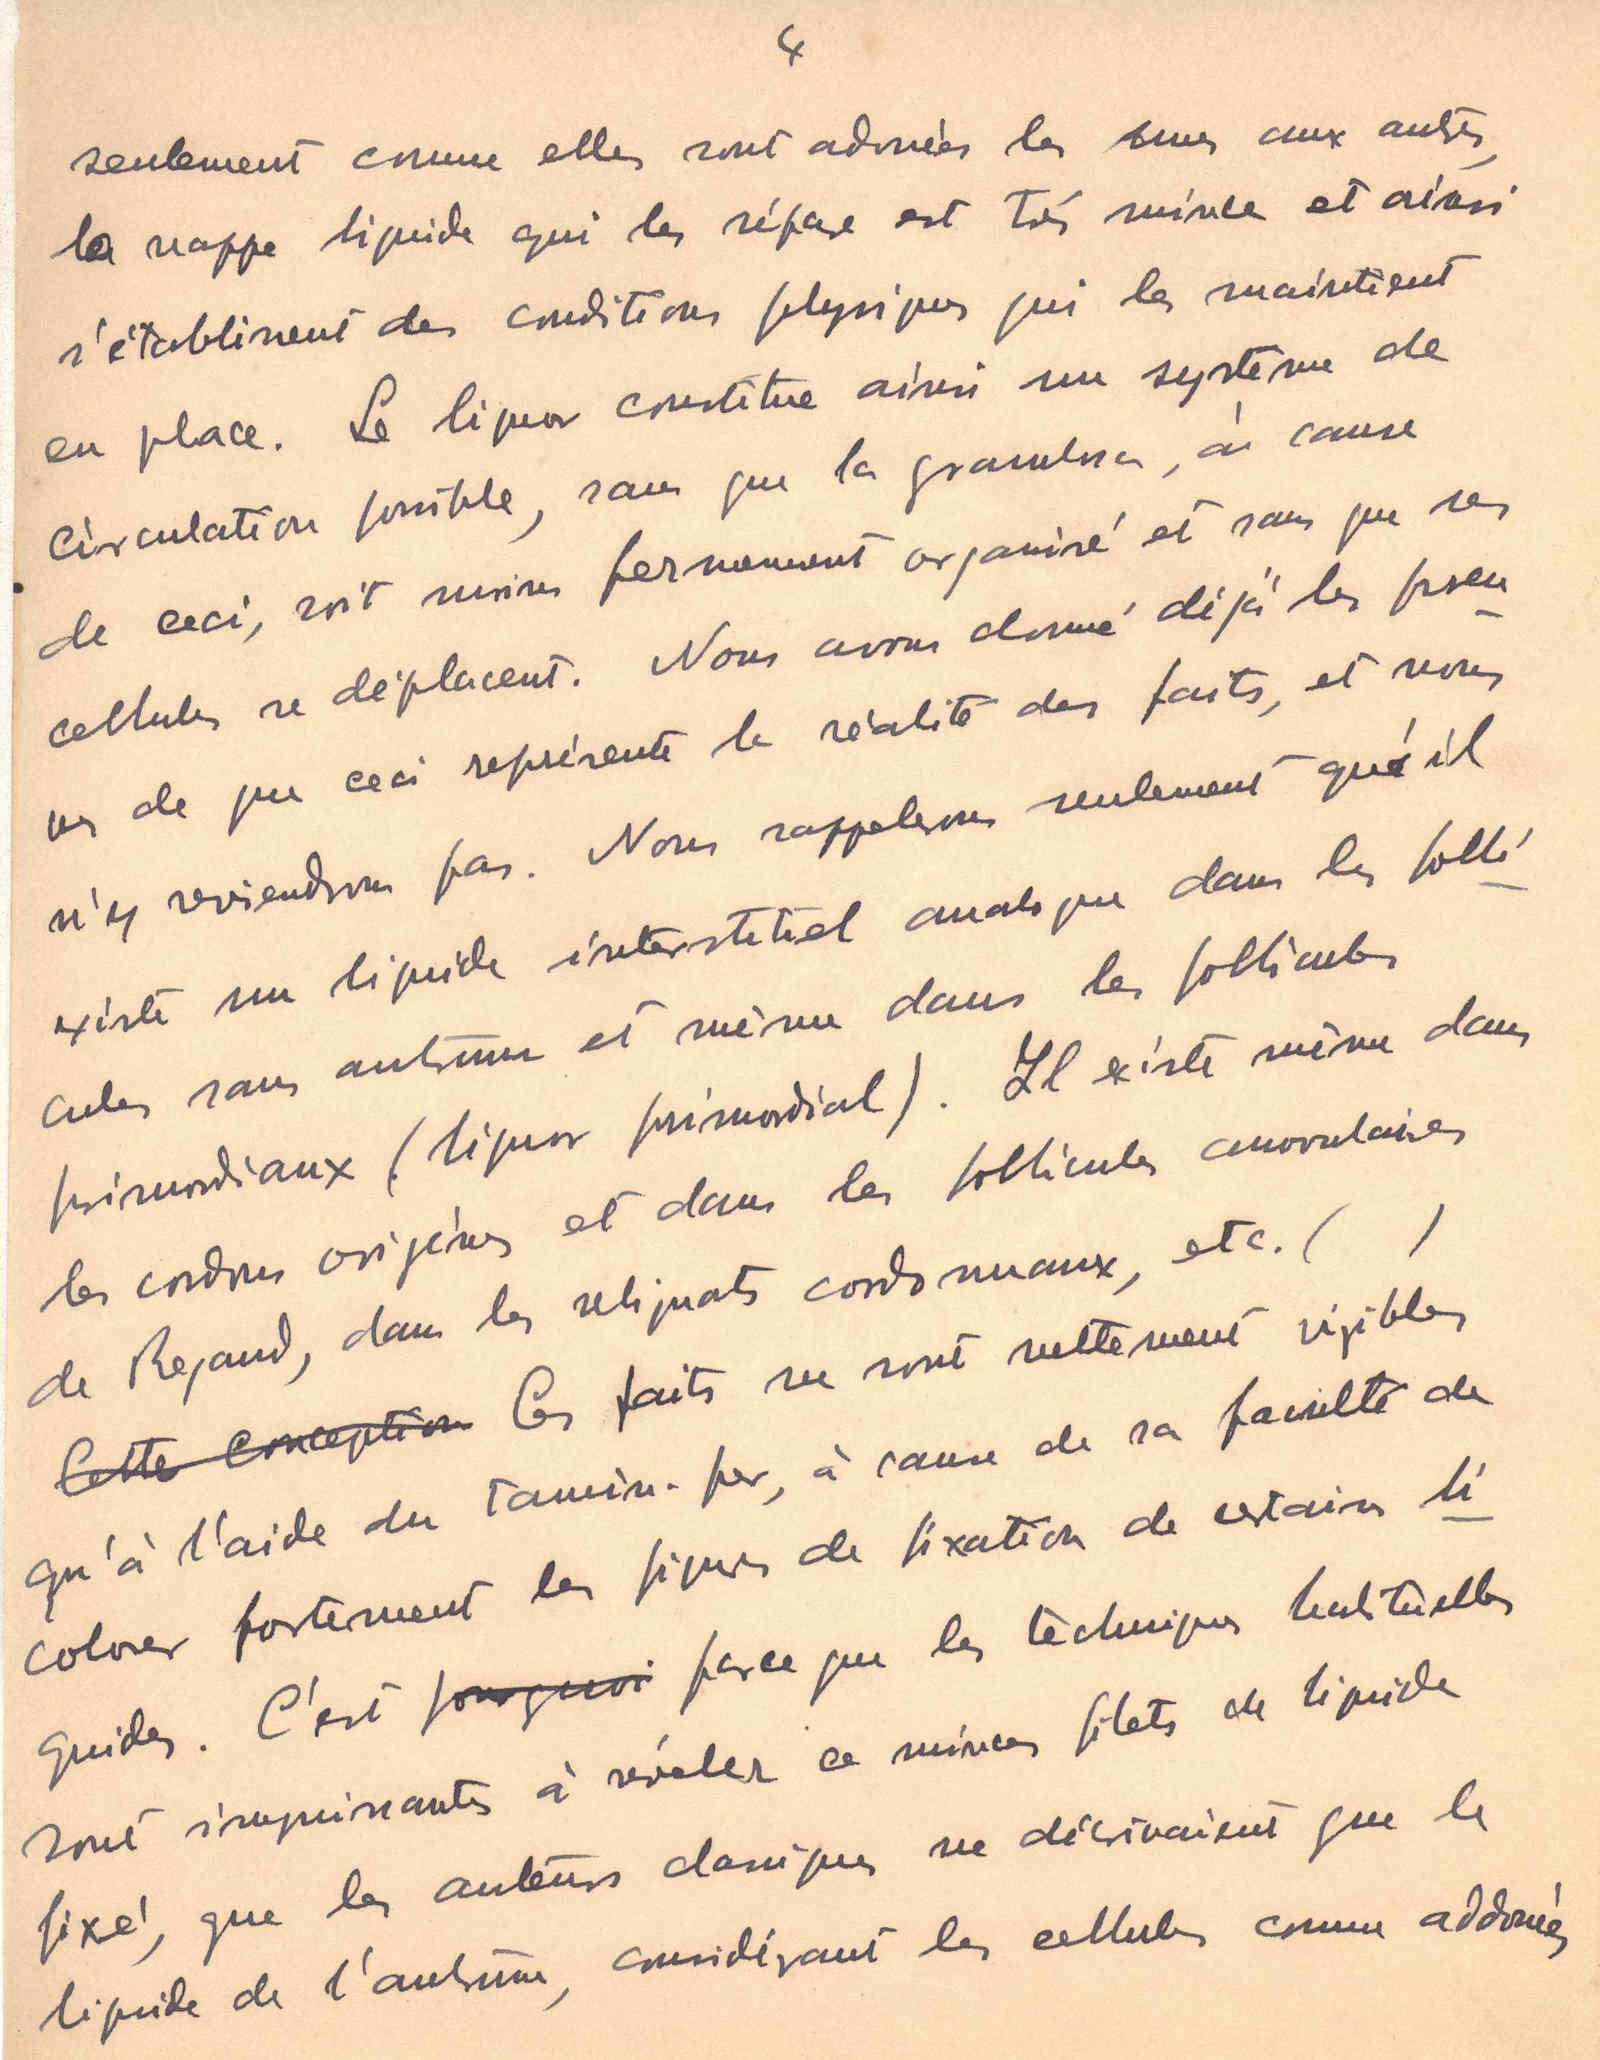 4
seulement comme elles sont adonées les unes aux autres,
la nappe liquide qui les sépare est très mince et ainsi
s'établissent des conditions physiques qui les maintient
en place. Le liquor constitue ainsi un système de
circulation possible, sans que la granulosa, à cause
de ceci, soit moins fermement organisé et sans que ses
cellules se déplacent. Nous avons donné déjà les preu
ves de que ceci représente la réalité des faits, et nous
n'y reviendrons pas. Nous rappelerons seulement qu'il
existe un liquide interstitiel analogue dans les folli
cules sans antrum et même dans les follicules
primordiaux (liquor primordial). Il existe même dans
les cordons origènes et dans les follicules anovulaires
de Regaud, dans les reliquats cordonnaux, etc. ( )
Cette conception Ces faits ne sont nettement visibles
qu'à l'aide du tannin-fer, à cause de sa faculté de
colorer fortement les figures de fixation de certains li
quides. C'est pourquoi parce que les techniques habituelles
sont impuissantes à révéler ce minces filets de liquide
fixé, que les auteurs classiques ne décrivaient que le
liquide de l'antrum, considérant les cellules comme addonées